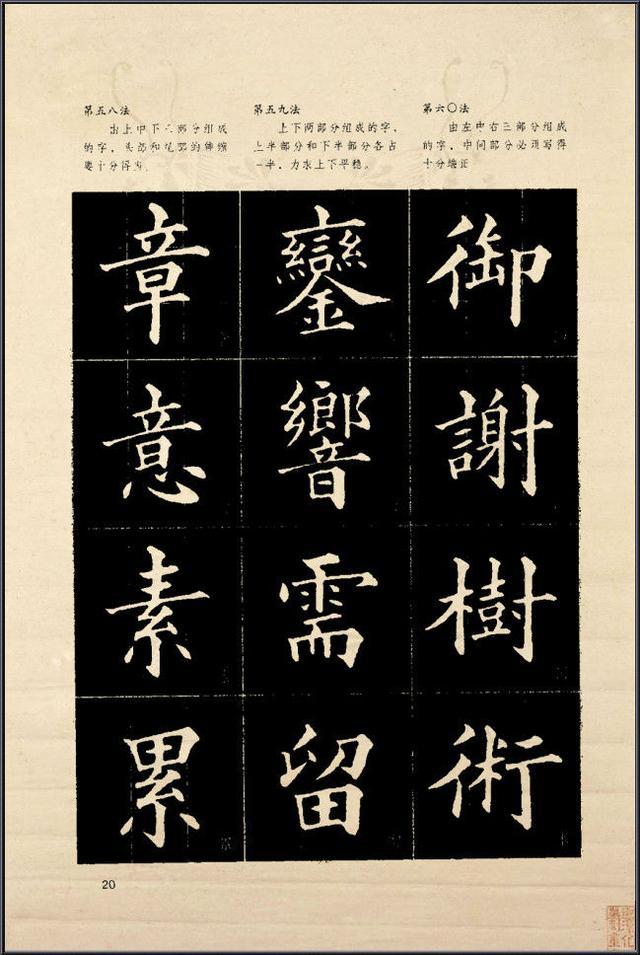 第五八法
由上中下三部分组成
的字，头部和尾部的伸缩
要十分得当。
第五九法
上下两部分组成的字，
上半部分和下半部分各占
一半，力求上下平稳。
第六〇法
由左中右三部分组成
的字，中间部分必须写得
十分端正
章
意
素
累
鑾
響
需
留
御
謝
樹
術
20